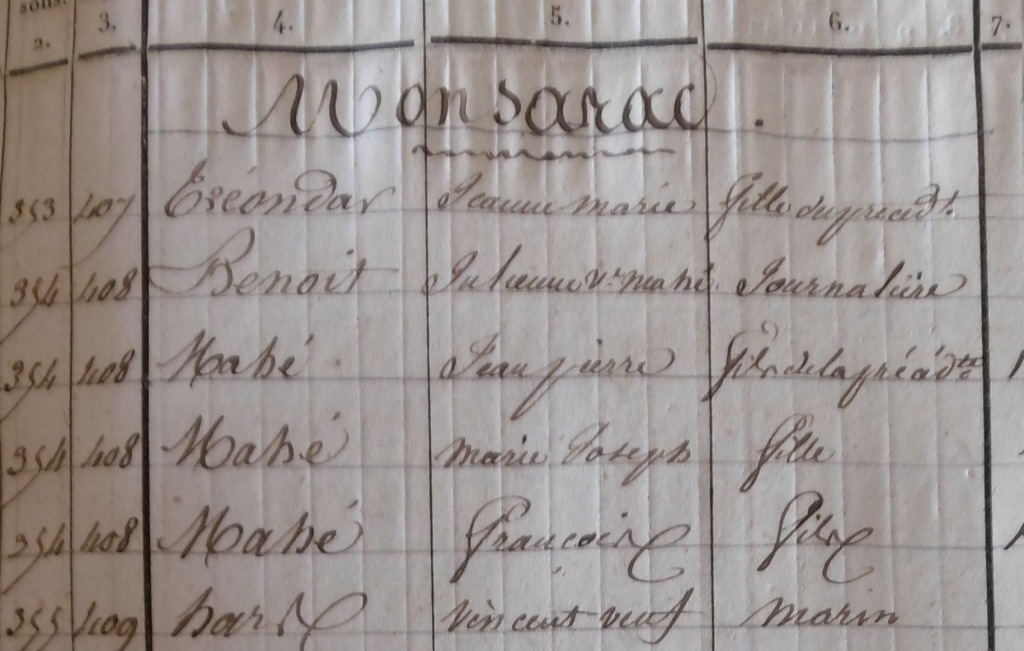 3. 4. 5. 6. 7.
2.
Monsarac.
353 407 Eséondar Jeanne marie fille du précédt.
354 408 Benoit Julienne ve mahé Journalière
354 408 Mahé Jean pierre fils de la précédte
354 408 Mahé marie Joseph fille
354 408 Mahé françois fils
355 409 vincent veuf marin